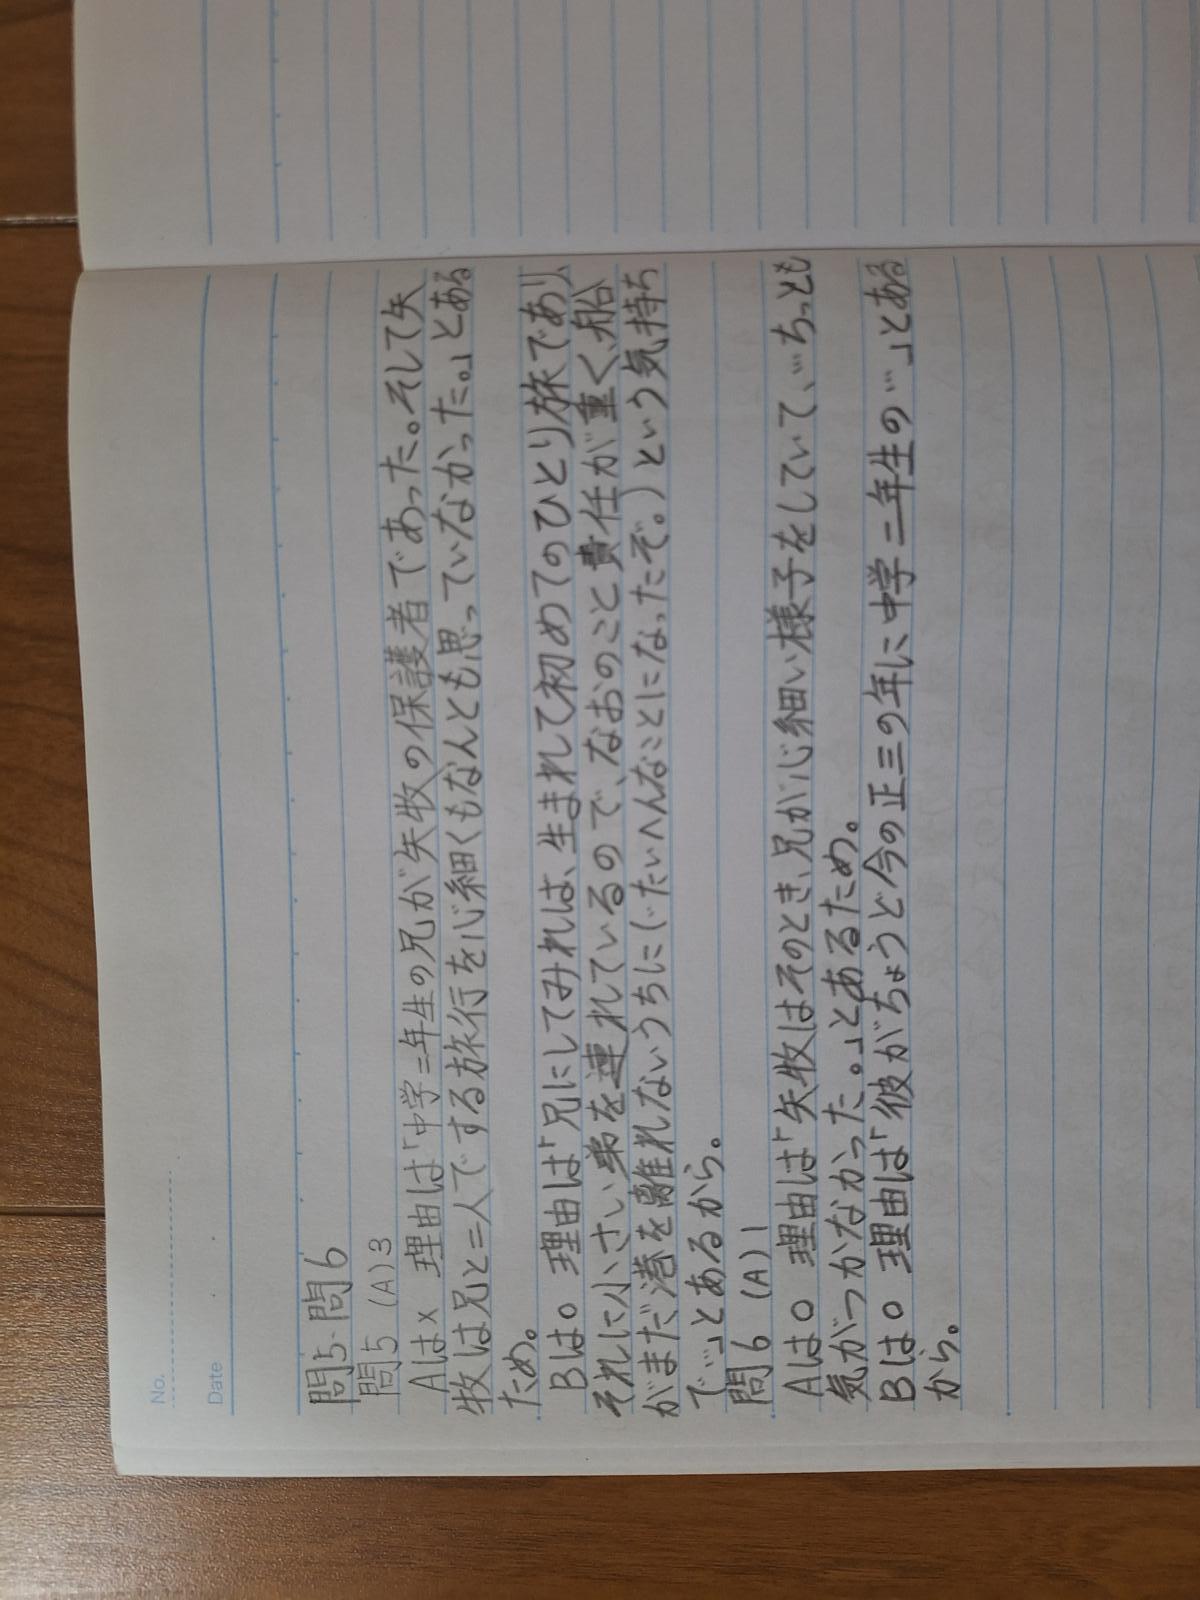 No.
Date
問5、問6
問5 (A) 3
Aは× 理由は「中学二年生の兄が矢牧の保護者であった。そして矢
牧は兄と二人でする旅行を心細くもなんとも思っていなかった。」とある
ため。
Bは○ 理由は「兄にしてみれば、生まれて初めてのひとり旅であり、
それに小さい弟を連れているので、なおのこと責任が重く、船
がまだ港を離れないうちに(たいへんなことになったぞ。)という気持ち
で…」とあるから。
問6 (A) 1
Aは○ 理由は「矢牧はそのとき、兄が心細い様子をしていて、…ちっとも
気がつかなかった。」とあるため。
Bは○ 理由は「彼がちょうど今の正三の年に中学二年生の…」とある
から。